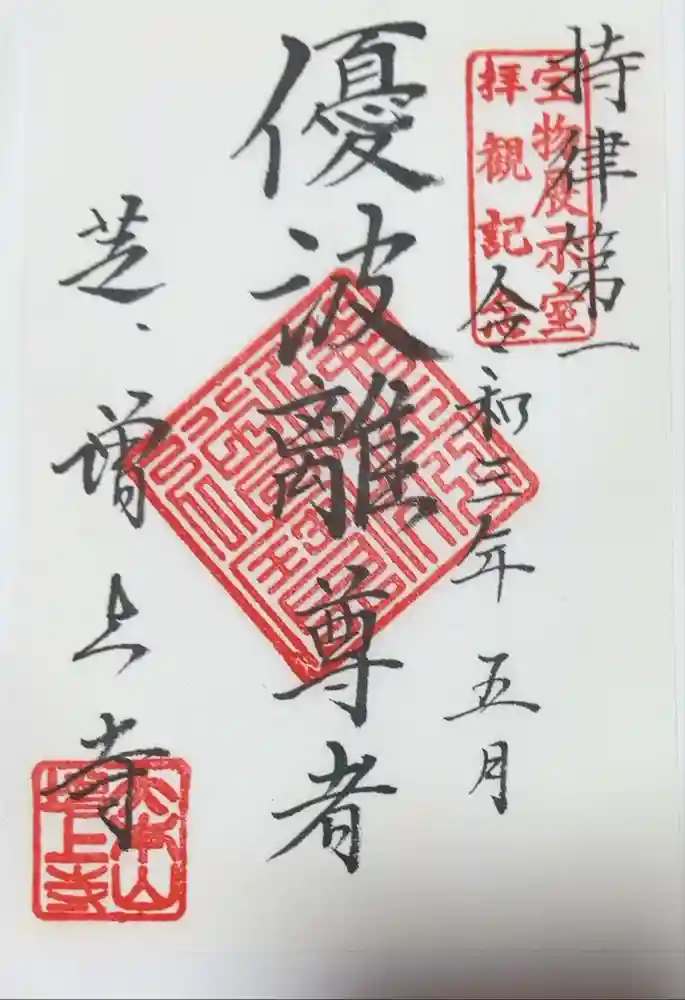 持律第一
宝物展示室
拝観記念
令和三年五月
優波離尊者
芝、増上寺